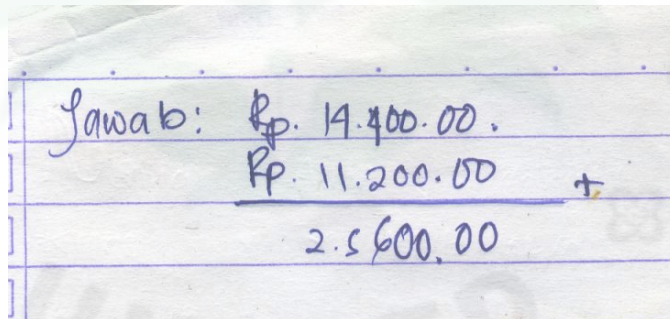 Jawab: Rp. 14.400.00.
Rp. 11.200.00 +
2.5600.00